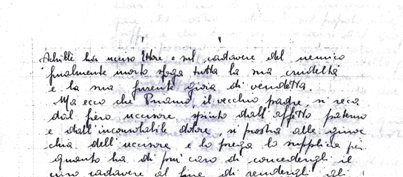 Achille ha ucciso Ettore e sul cadavere del nemico
finalmente morto sfoga tutta la sua crudeltà
e la sua furente gioia di vendetta.
Ma ecco che Priamo, il vecchio padre, si reca
dal fiero uccisore, spinto dall'affetto paterno
e dall'inconsolabile dolore, si prostra alle ginoc
chia dell'uccisore e lo prega lo supplica per
quanto ha di più caro di concedergli il
suo cadavere al fine di rendergli gli